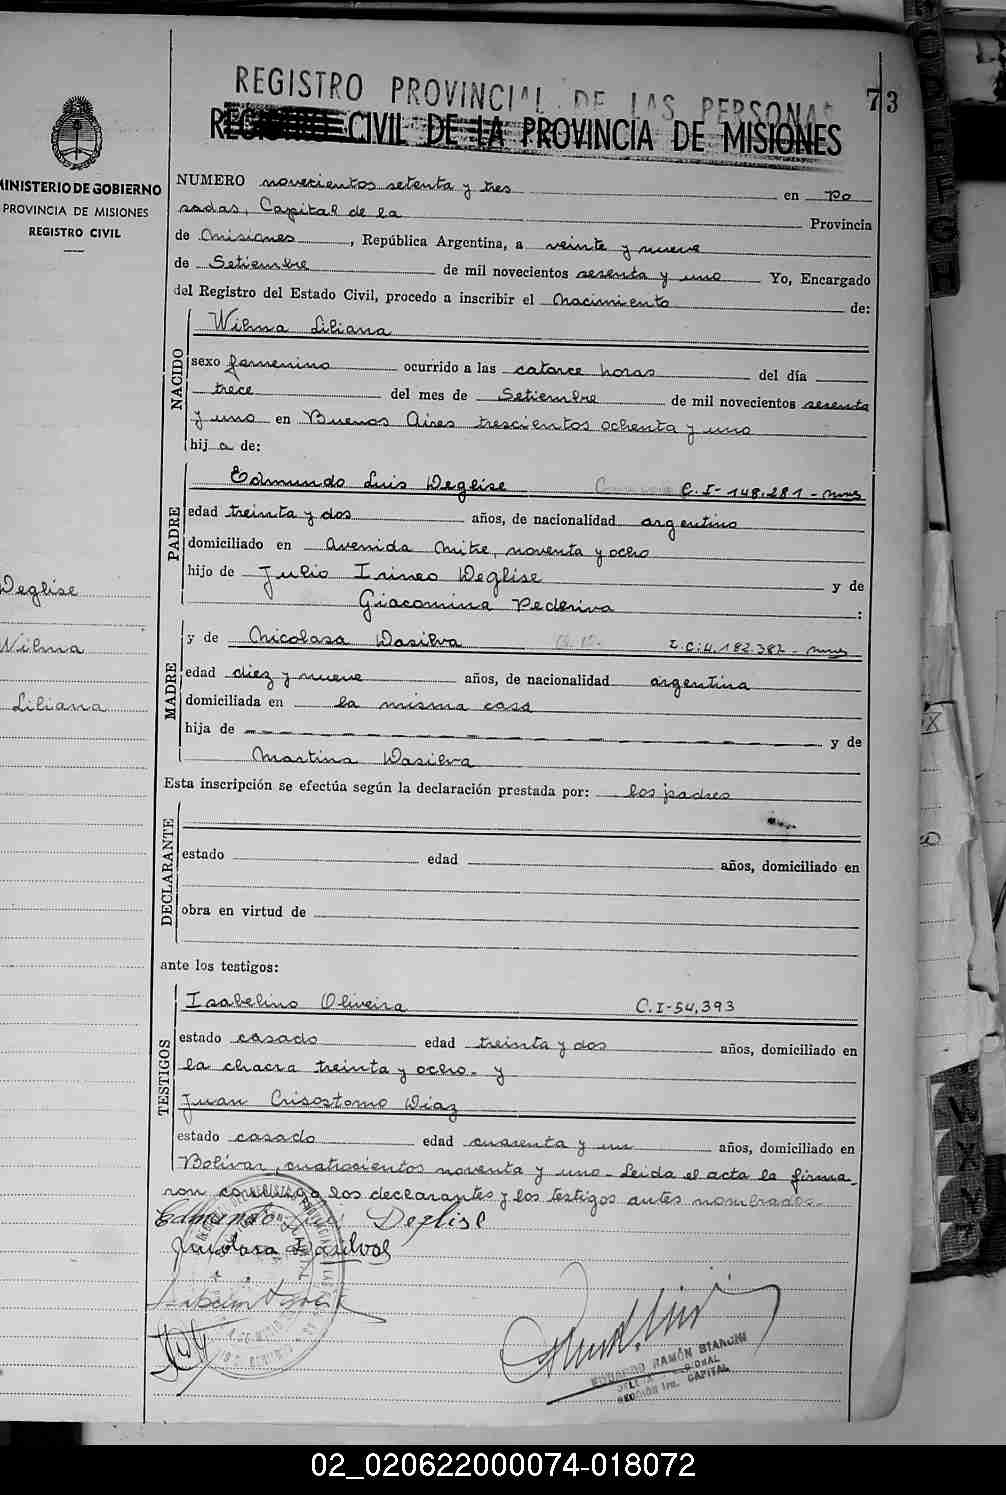 REGISTRO PROVINCIAL DE LAS PERSONAS
73
REGISTRO CIVIL DE LA PROVINCIA DE MISIONES
MINISTERIO DE GOBIERNO
PROVINCIA DE MISIONES
REGISTRO CIVIL
NUMERO novecientos setenta y tres en Po
sadas, Capital de la Provincia
de Misiones, República Argentina, a veinte y nueve
de Setiembre de mil novecientos sesenta y uno Yo, Encargado
del Registro del Estado Civil, procedo a inscribir el Nacimiento de:
NACIDO
Wilma Liliana
sexo femenino ocurrido a las catorce horas del día
trece del mes de Setiembre de mil novecientos sesenta
y uno en Buenos Aires trescientos ochenta y uno
hij a de:
PADRE
Edmundo Luis Deglise C.I-148.281-
edad treinta y dos años, de nacionalidad argentino
domiciliado en Avenida Mitre, noventa y ocho
hijo de Julio Irineo Deglise y de
Giacomina Pederiva :
MADRE
y de Nicolasa Dasilva I.C:4.182.382-
edad diez y nueve años, de nacionalidad argentina
domiciliada en la misma casa
hija de — — — — — — — — — — y de
Martina Dasilva
Deglise
Wilma
Liliana
Esta inscripción se efectúa según la declaración prestada por: los padres
DECLARANTE
estado edad años, domiciliado en
obra en virtud de
ante los testigos:
TESTIGOS
Isabelino Oliveira C.I-54,393
estado casado edad treinta y dos años, domiciliado en
la chacra treinta y ocho- y
Juan Crisostomo Diaz
estado casado edad cuarenta y un años, domiciliado en
Bolívar, cuatrocientos noventa y uno- Leida el acta la firma-
ron conmigo los declarantes y los testigos antes nombrados-
Edmundo Luis Deglise
Nicolasa Dasilva
EDUARDO RAMÓN BIANCHI
SECCIÓN 1ra. CAPITAL
02_020622000074-018072